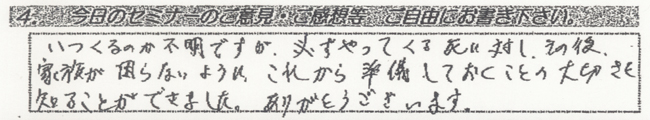 4. 今日のセミナーのご意見・ご感想等 ご自由にお書き下さい。
いつくるのか不明ですが、必ずやってくる死に対し、その後、
家族が困らないように、これから準備しておくことの大切さを
知ることができました。ありがとうございます。